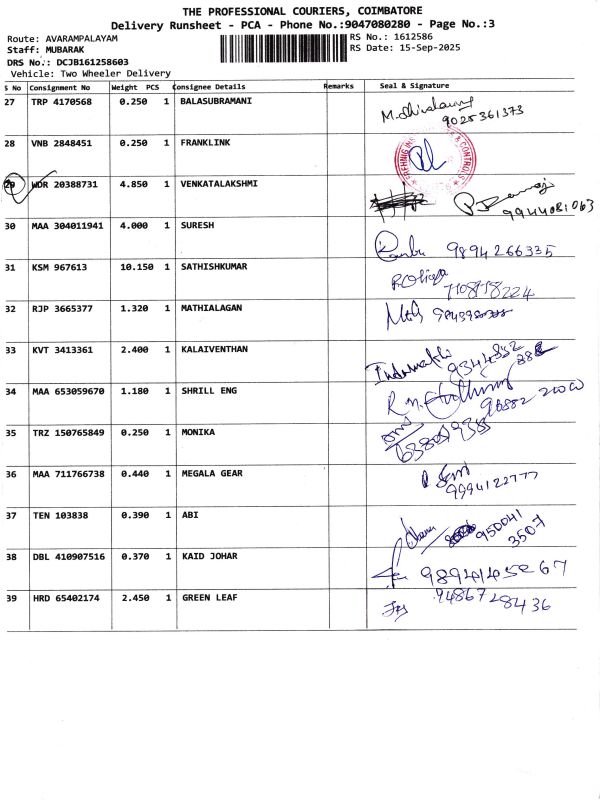 THE PROFESSIONAL COURIERS, COIMBATORE
Delivery Runsheet - PCA - Phone No.:9047080280 - Page No.:3
Route: AVARAMPALAYAM
RS No.: 1612586
Staff: MUBARAK
RS Date: 15-Sep-2025
DRS No.: DCJB161258603
Vehicle: Two Wheeler Delivery
S No Consignment No Weight PCS Consignee Details Remarks Seal & Signature
27 TRP 4170568 0.250 1 BALASUBRAMANI
9025361373
28 VNB 2848451 0.250 1 FRANKLINK
& CONTROLS
29 WDR 20388731 4.850 1 VENKATALAKSHMI
9944081063
30 MAA 304011941 4.000 1 SURESH
9894266335
31 KSM 967613 10.150 1 SATHISHKUMAR
32 RJP 3665377 1.320 1 MATHIALAGAN
33 KVT 3413361 2.400 1 KALAIVENTHAN
34 MAA 653059670 1.180 1 SHRILL ENG
35 TRZ 150765849 0.250 1 MONIKA
36 MAA 711766738 0.440 1 MEGALA GEAR
9994122777
37 TEN 103838 0.390 1 ABI
950041
3507
38 DBL 410907516 0.370 1 KAID JOHAR
39 HRD 65402174 2.450 1 GREEN LEAF
9486728436